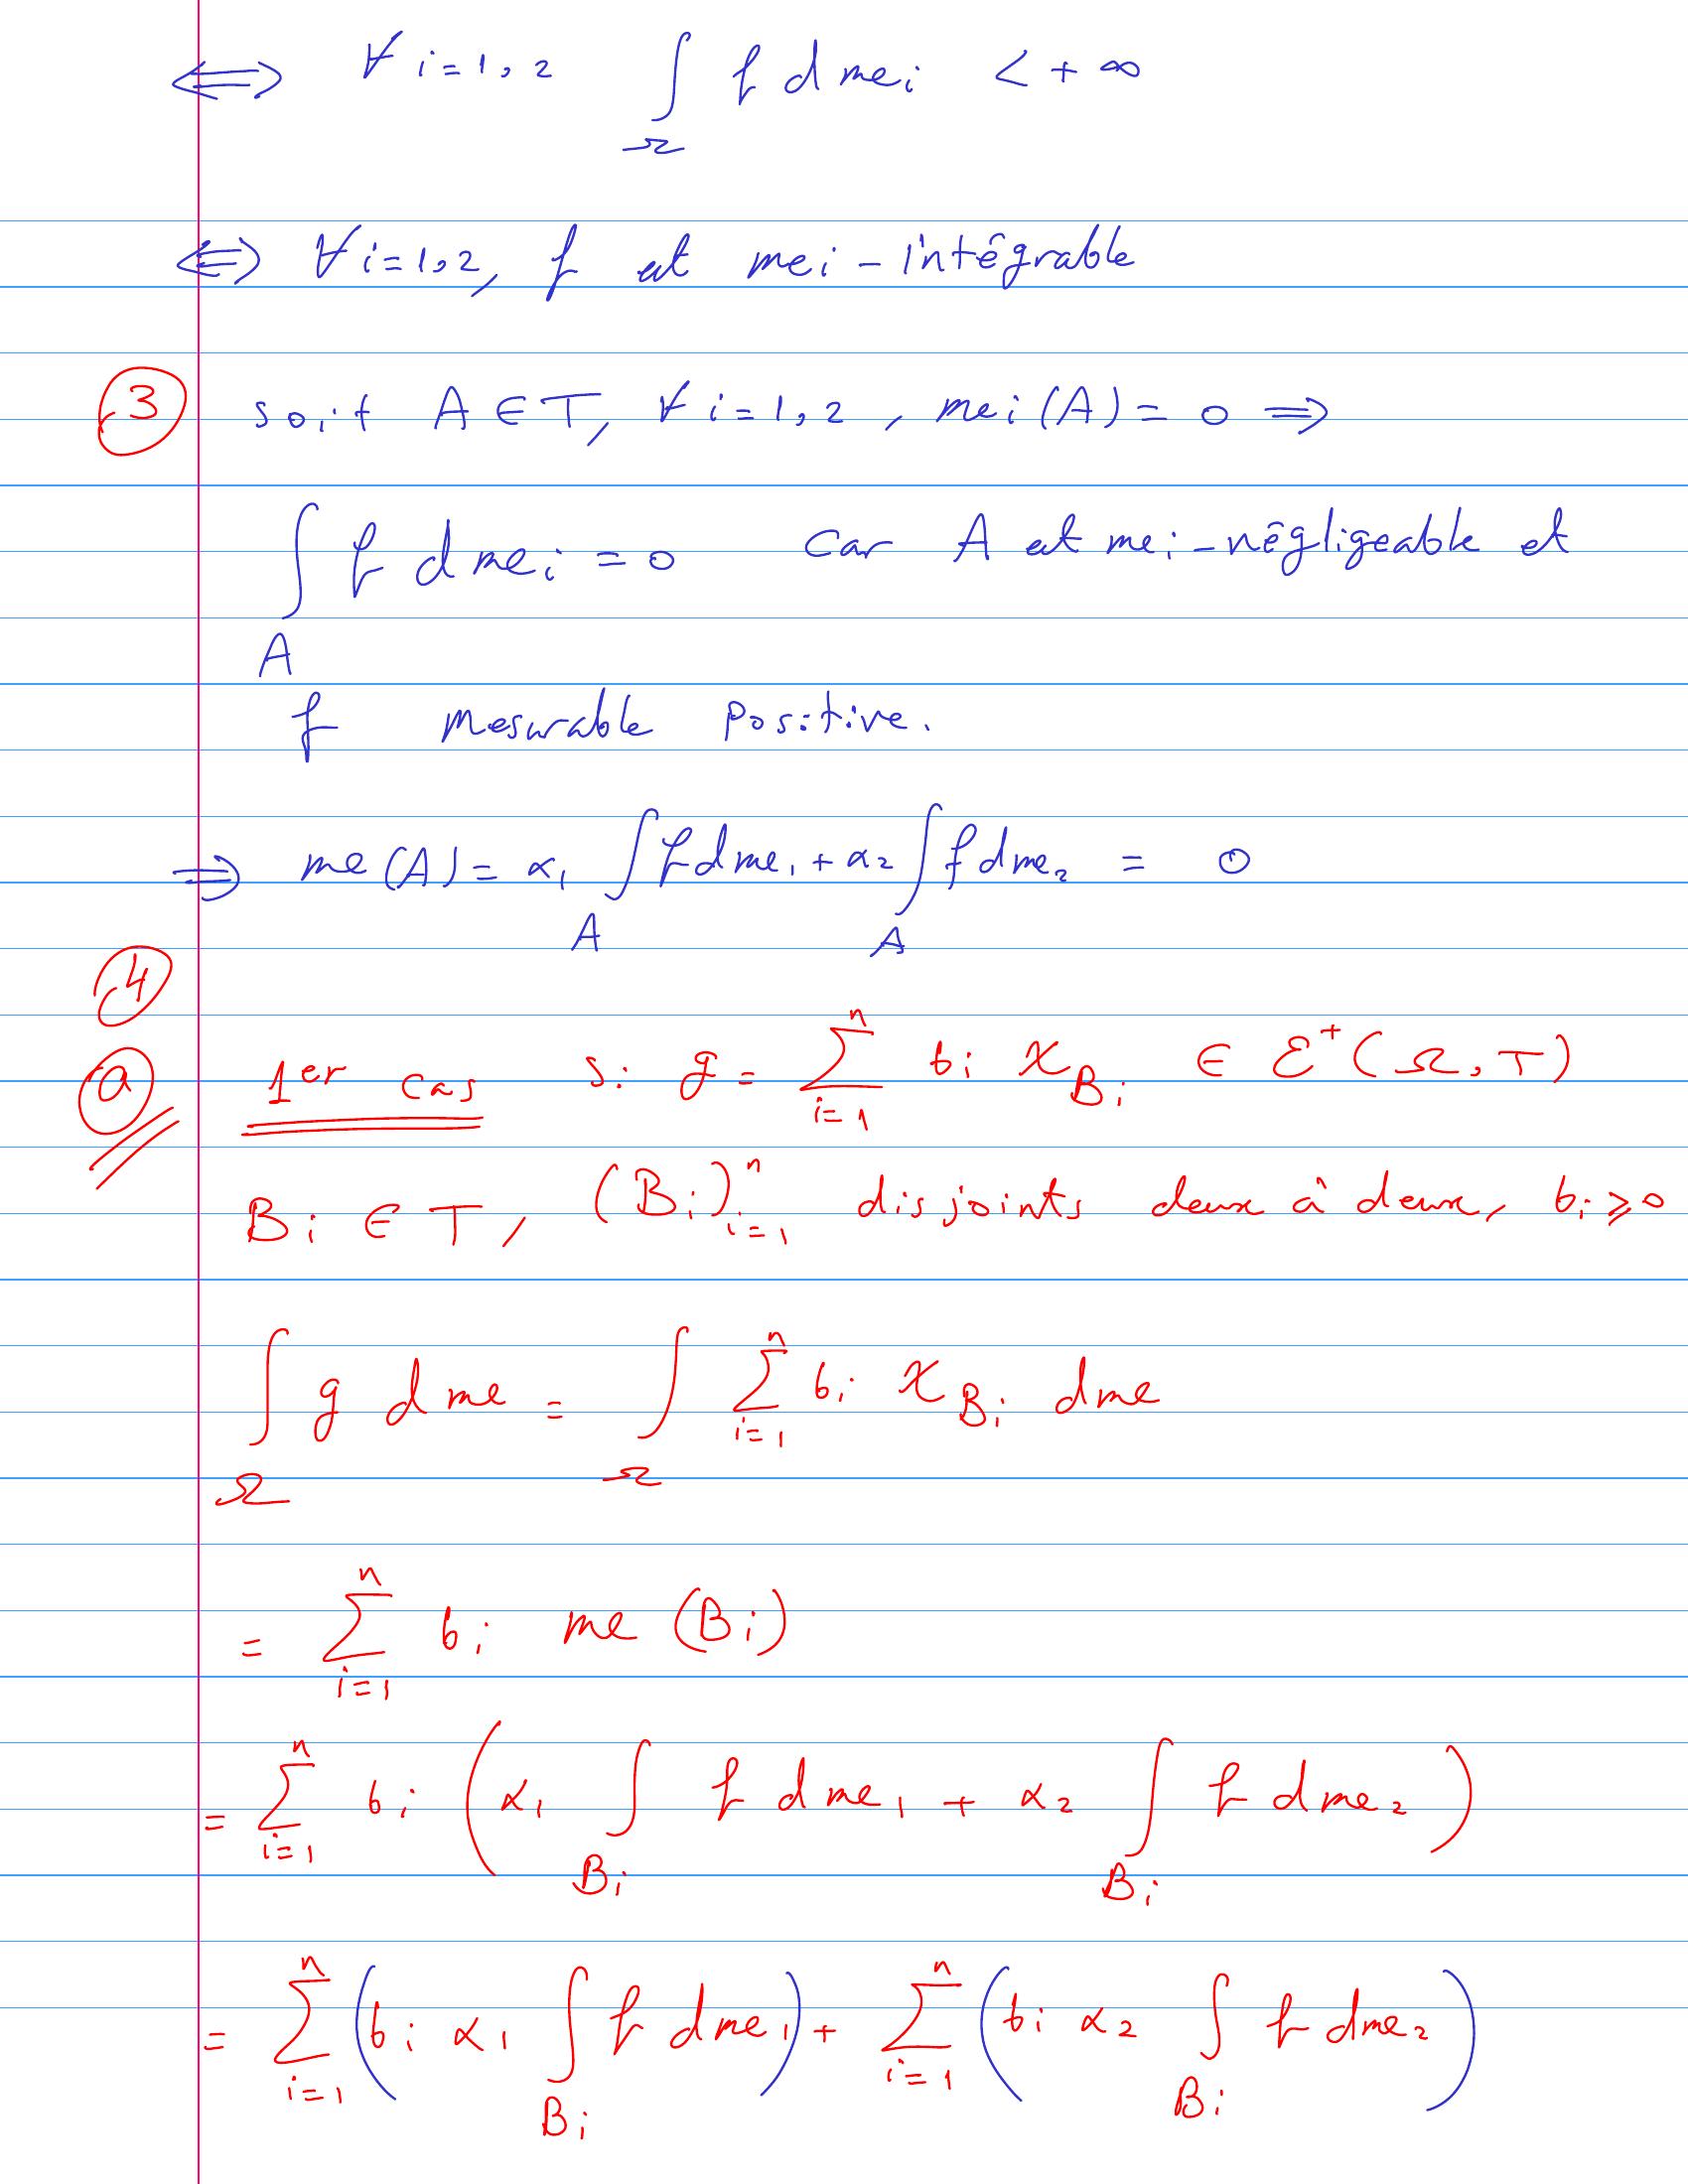 ⟺ ∀ i=1,2 ∫_Ω f d me_i < +∞
⟺ ∀ i=1,2, f est me_i - intégrable
③ soit A ∈ T, ∀ i=1,2, me_i(A) = 0 ⟹
∫_A f d me_i = 0 car A est me_i - négligeable et
f mesurable positive.
⟹ me(A) = α₁ ∫_A f d me₁ + α₂ ∫_A f d me₂ = 0
④
ⓐ 1er cas si g = ∑_{i=1}^{n} b_i χ_{B_i} ∈ ℰ⁺(Ω, T)
B_i ∈ T, (B_i)_{i=1}^{n} disjoints deux à deux, b_i ⩾ 0
∫_Ω g d me = ∫_Ω ∑_{i=1}^{n} b_i χ_{B_i} d me
= ∑_{i=1}^{n} b_i me(B_i)
= ∑_{i=1}^{n} b_i (α₁ ∫_{B_i} f d me₁ + α₂ ∫_{B_i} f d me₂)
= ∑_{i=1}^{n} (b_i α₁ ∫_{B_i} f d me₁) + ∑_{i=1}^{n} (b_i α₂ ∫_{B_i} f d me₂)